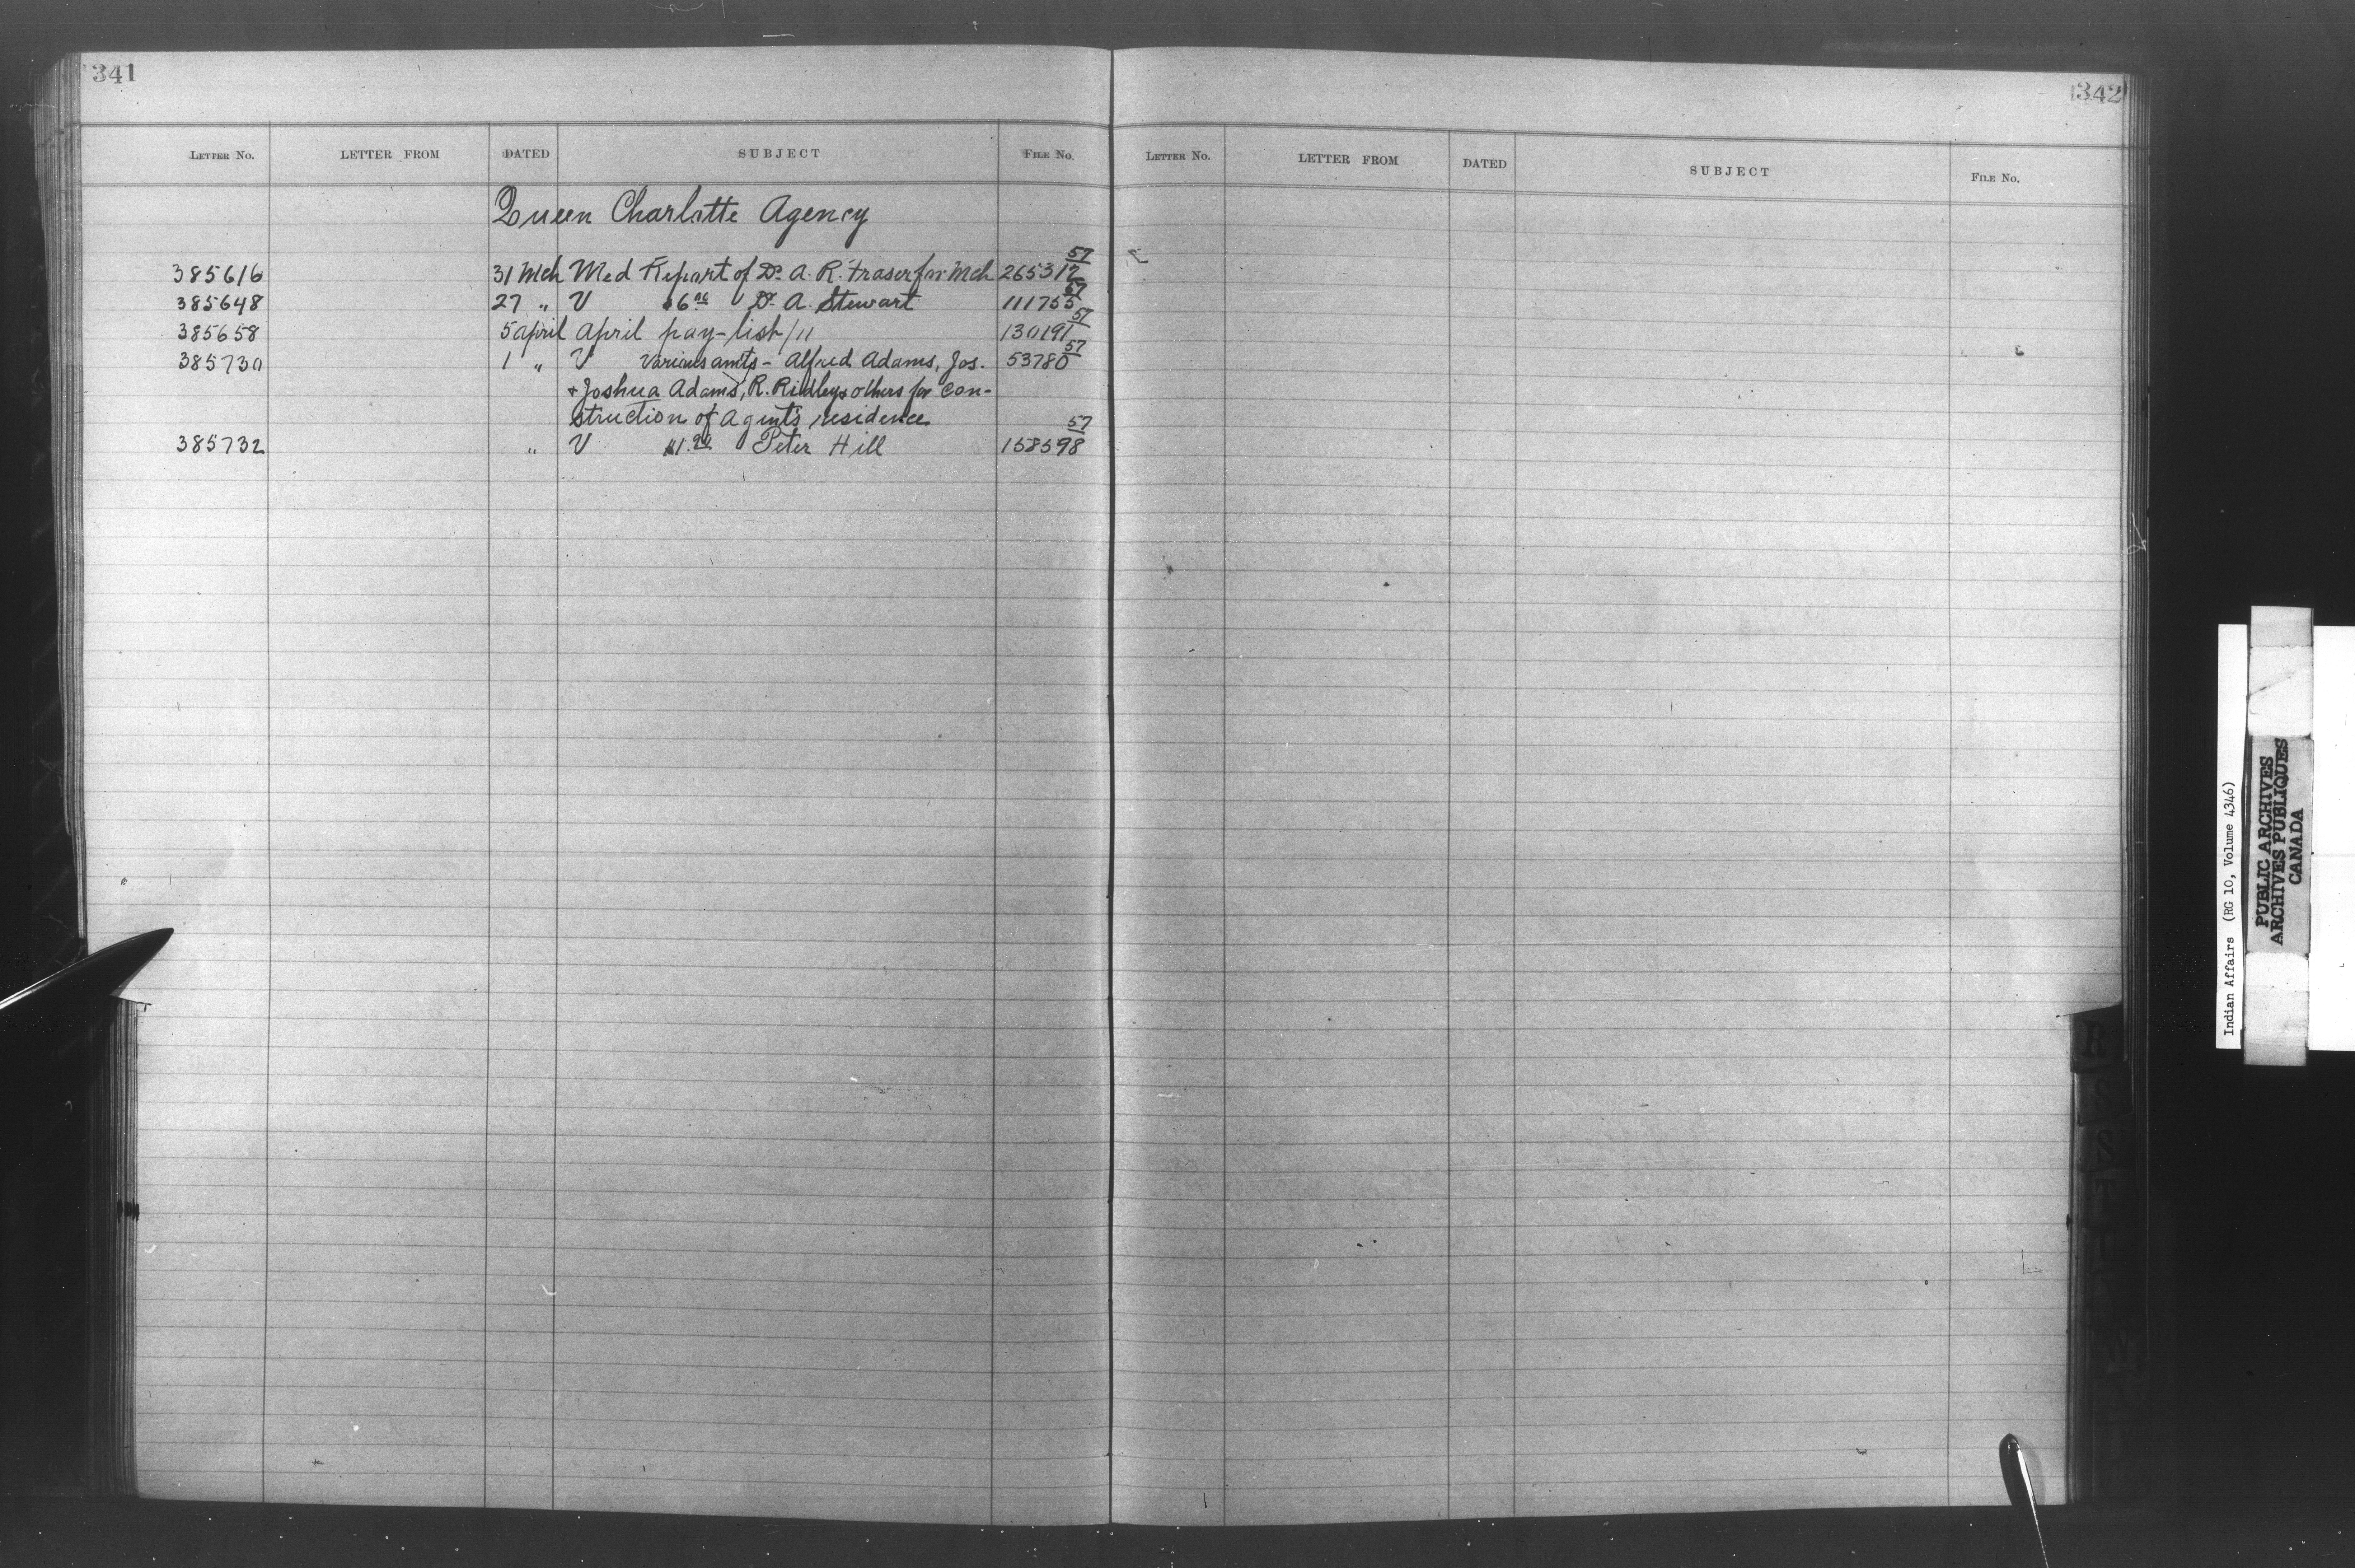 341
LETTER NO. LETTER FROM DATED SUBJECT FILE NO.
Queen Charlotte Agency
385616 31 Mch Med Report of Dr. A. R. Fraser for Mch 265317 57
385648 27 " V 6 00 Dr. A. Stewart 111755 57
385658 5 april April pay-list/11 130191 57
385730 1 " V various amts - Alfred Adams, Jos. 53780 57
+ Joshua Adams, R. Ridley & others for con-
struction of agent's residence
385732 " V Peter Hill 158598 57
342
LETTER NO. LETTER FROM DATED SUBJECT FILE NO.
R
S
S
T
Indian Affairs (RG 10, Volume 4346)
PUBLIC ARCHIVES
ARCHIVES PUBLIQUES
CANADA